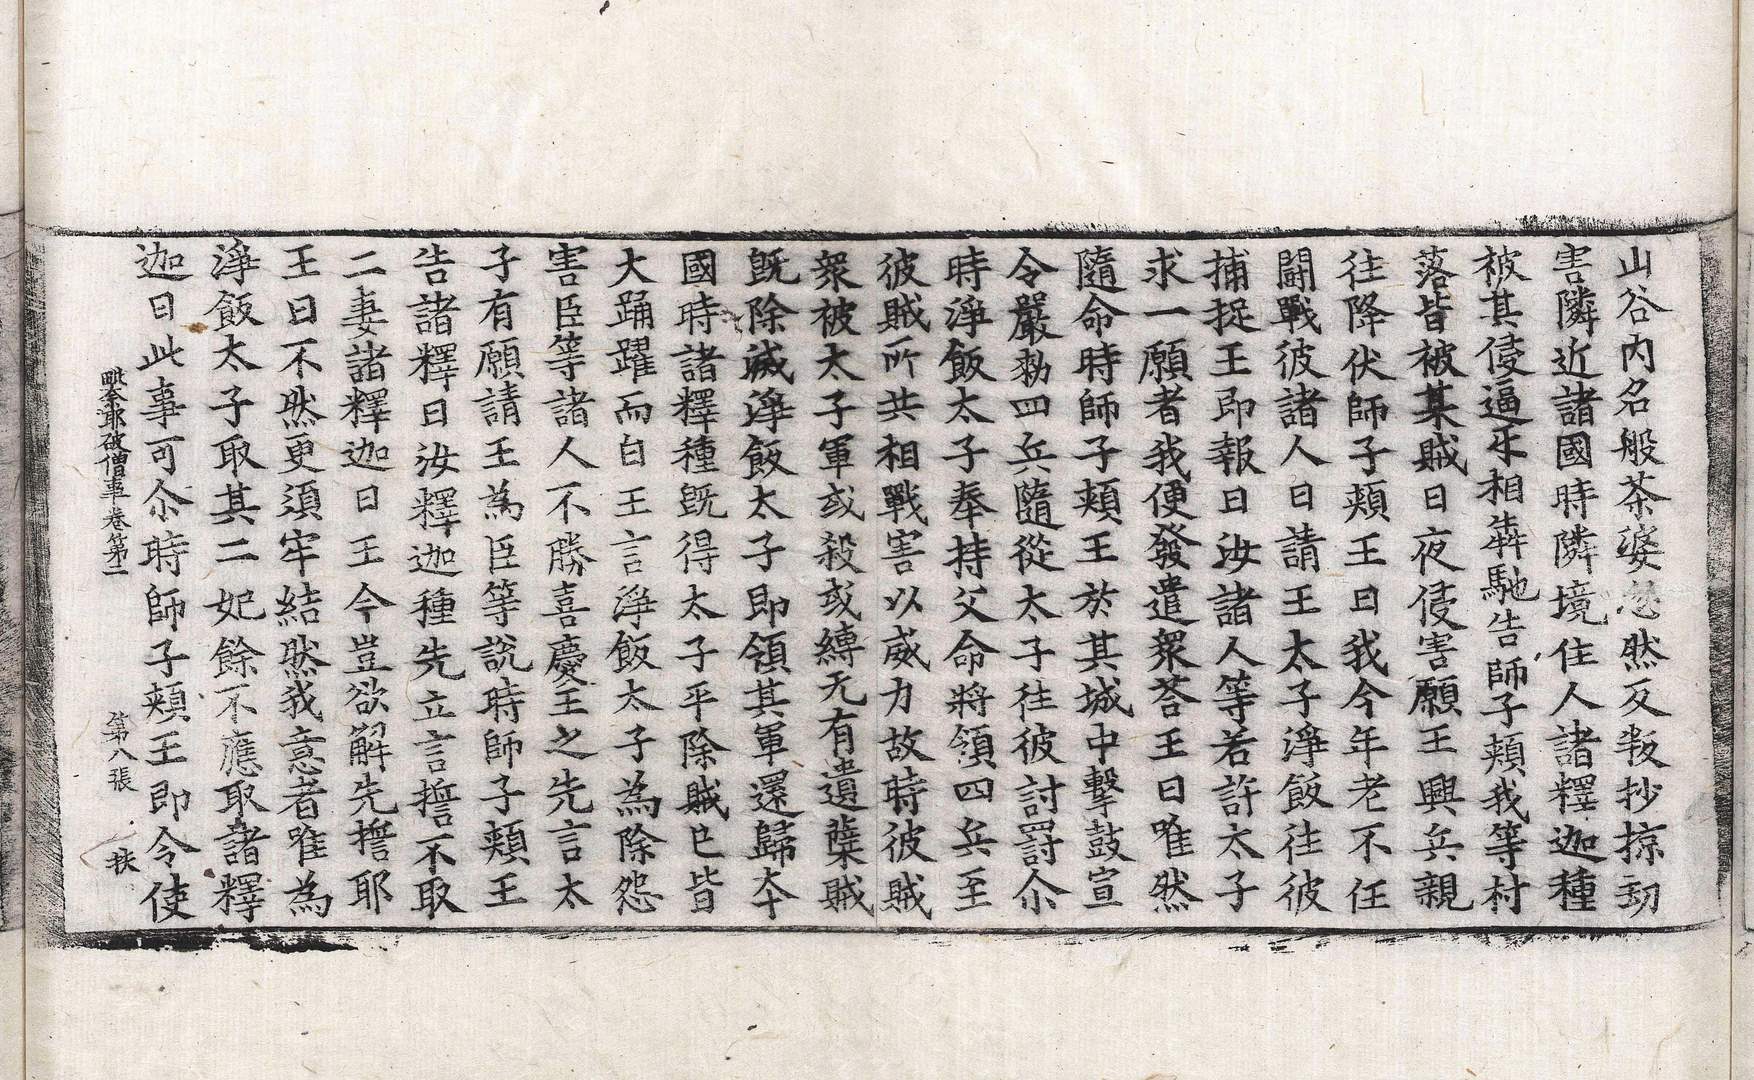 山谷内名般茶婆忿然反叛抄掠刧
害隣近諸國時隣境住人諸釋迦種
被其侵逼不相犇馳告師子頰我等村
落皆被某賊日夜侵害願王興兵親
往降伏師子頰王曰我今年老不任
闘戰彼諸人曰請王太子淨飯往彼
捕捉王即報曰汝諸人等若許太子
求一願者我便發遣衆荅王曰唯然
隨命時師子頰王於其城中擊鼓宣
令嚴勑四兵隨從太子往彼討罸尒
時淨飯太子奉持父命將領四兵至
彼賊所共相戰害以威力故時彼賊
衆被太子軍或殺或縛无有遺蘖賊
旣除滅淨飯太子即領其軍還歸本
國時諸釋種旣得太子平除賊已皆
大踊躍而白王言淨飯太子為除怨
害臣等諸人不勝喜慶王之先言太
子有願請王為臣等說時師子頰王
告諸釋曰汝釋迦種先立言誓不取
二妻諸釋迦曰王今豈欲解先誓耶
王曰不然更須牢結然我意者唯為
淨飯太子取其二妃餘不應取諸釋
迦曰此事可尒時師子頰王即令使
毗奈耶破僧事卷第二 第八張 扶